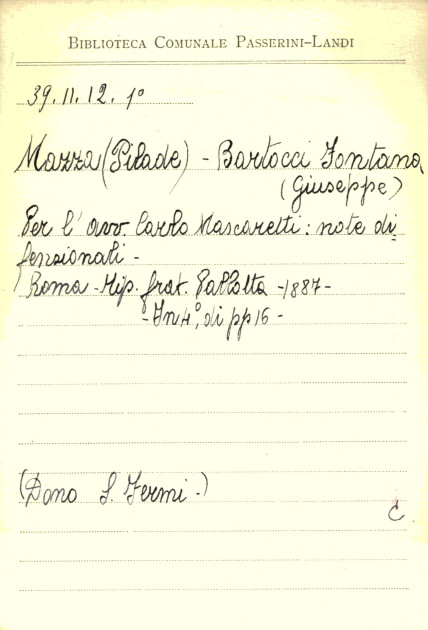 BIBLIOTECA COMUNALE PASSERINI-LANDI
39. 11. 12. 1°
Mazza (Pilade) - Bartocci Fontana
(Giuseppe)
Per l'avv. Carlo Mascaretti: note di
fensionali -
Roma - Tip. frat. Pallotta - 1887 -
- In 4°, di pp 16 -
(Dono S. Fermi -)
C